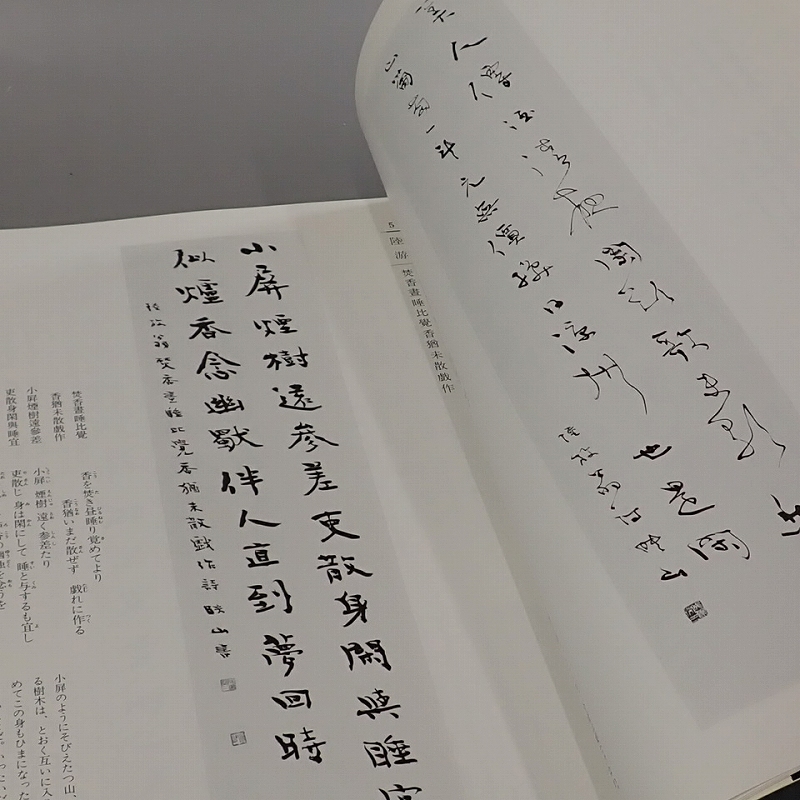 美人傳酒清夜闌欲歌未歌
山葡萄一斗元無價換得涼州也是閑
陸放翁詩 映山
5 陸游 焚香晝睡比覺香猶未散戲作
小屏煙樹遠參差吏散身閑與睡宜
似爐香念幽獨伴人直到夢回時
陸放翁焚香晝睡比覺香猶未散戲作詩 映山書
焚香晝睡比覺
香猶未散戲作
小屏煙樹遠參差
吏散身閑與睡宜
香を焚き昼睡り覚めてより
香猶いまだ散ぜず 戯れに作る
小屏 煙樹 遠く参差たり
吏散じ 身は閑にして 睡と与するも宜し
小屏のようにそびえたつ山、
る樹木は、とおく互いに入
めてこの身もひまになった